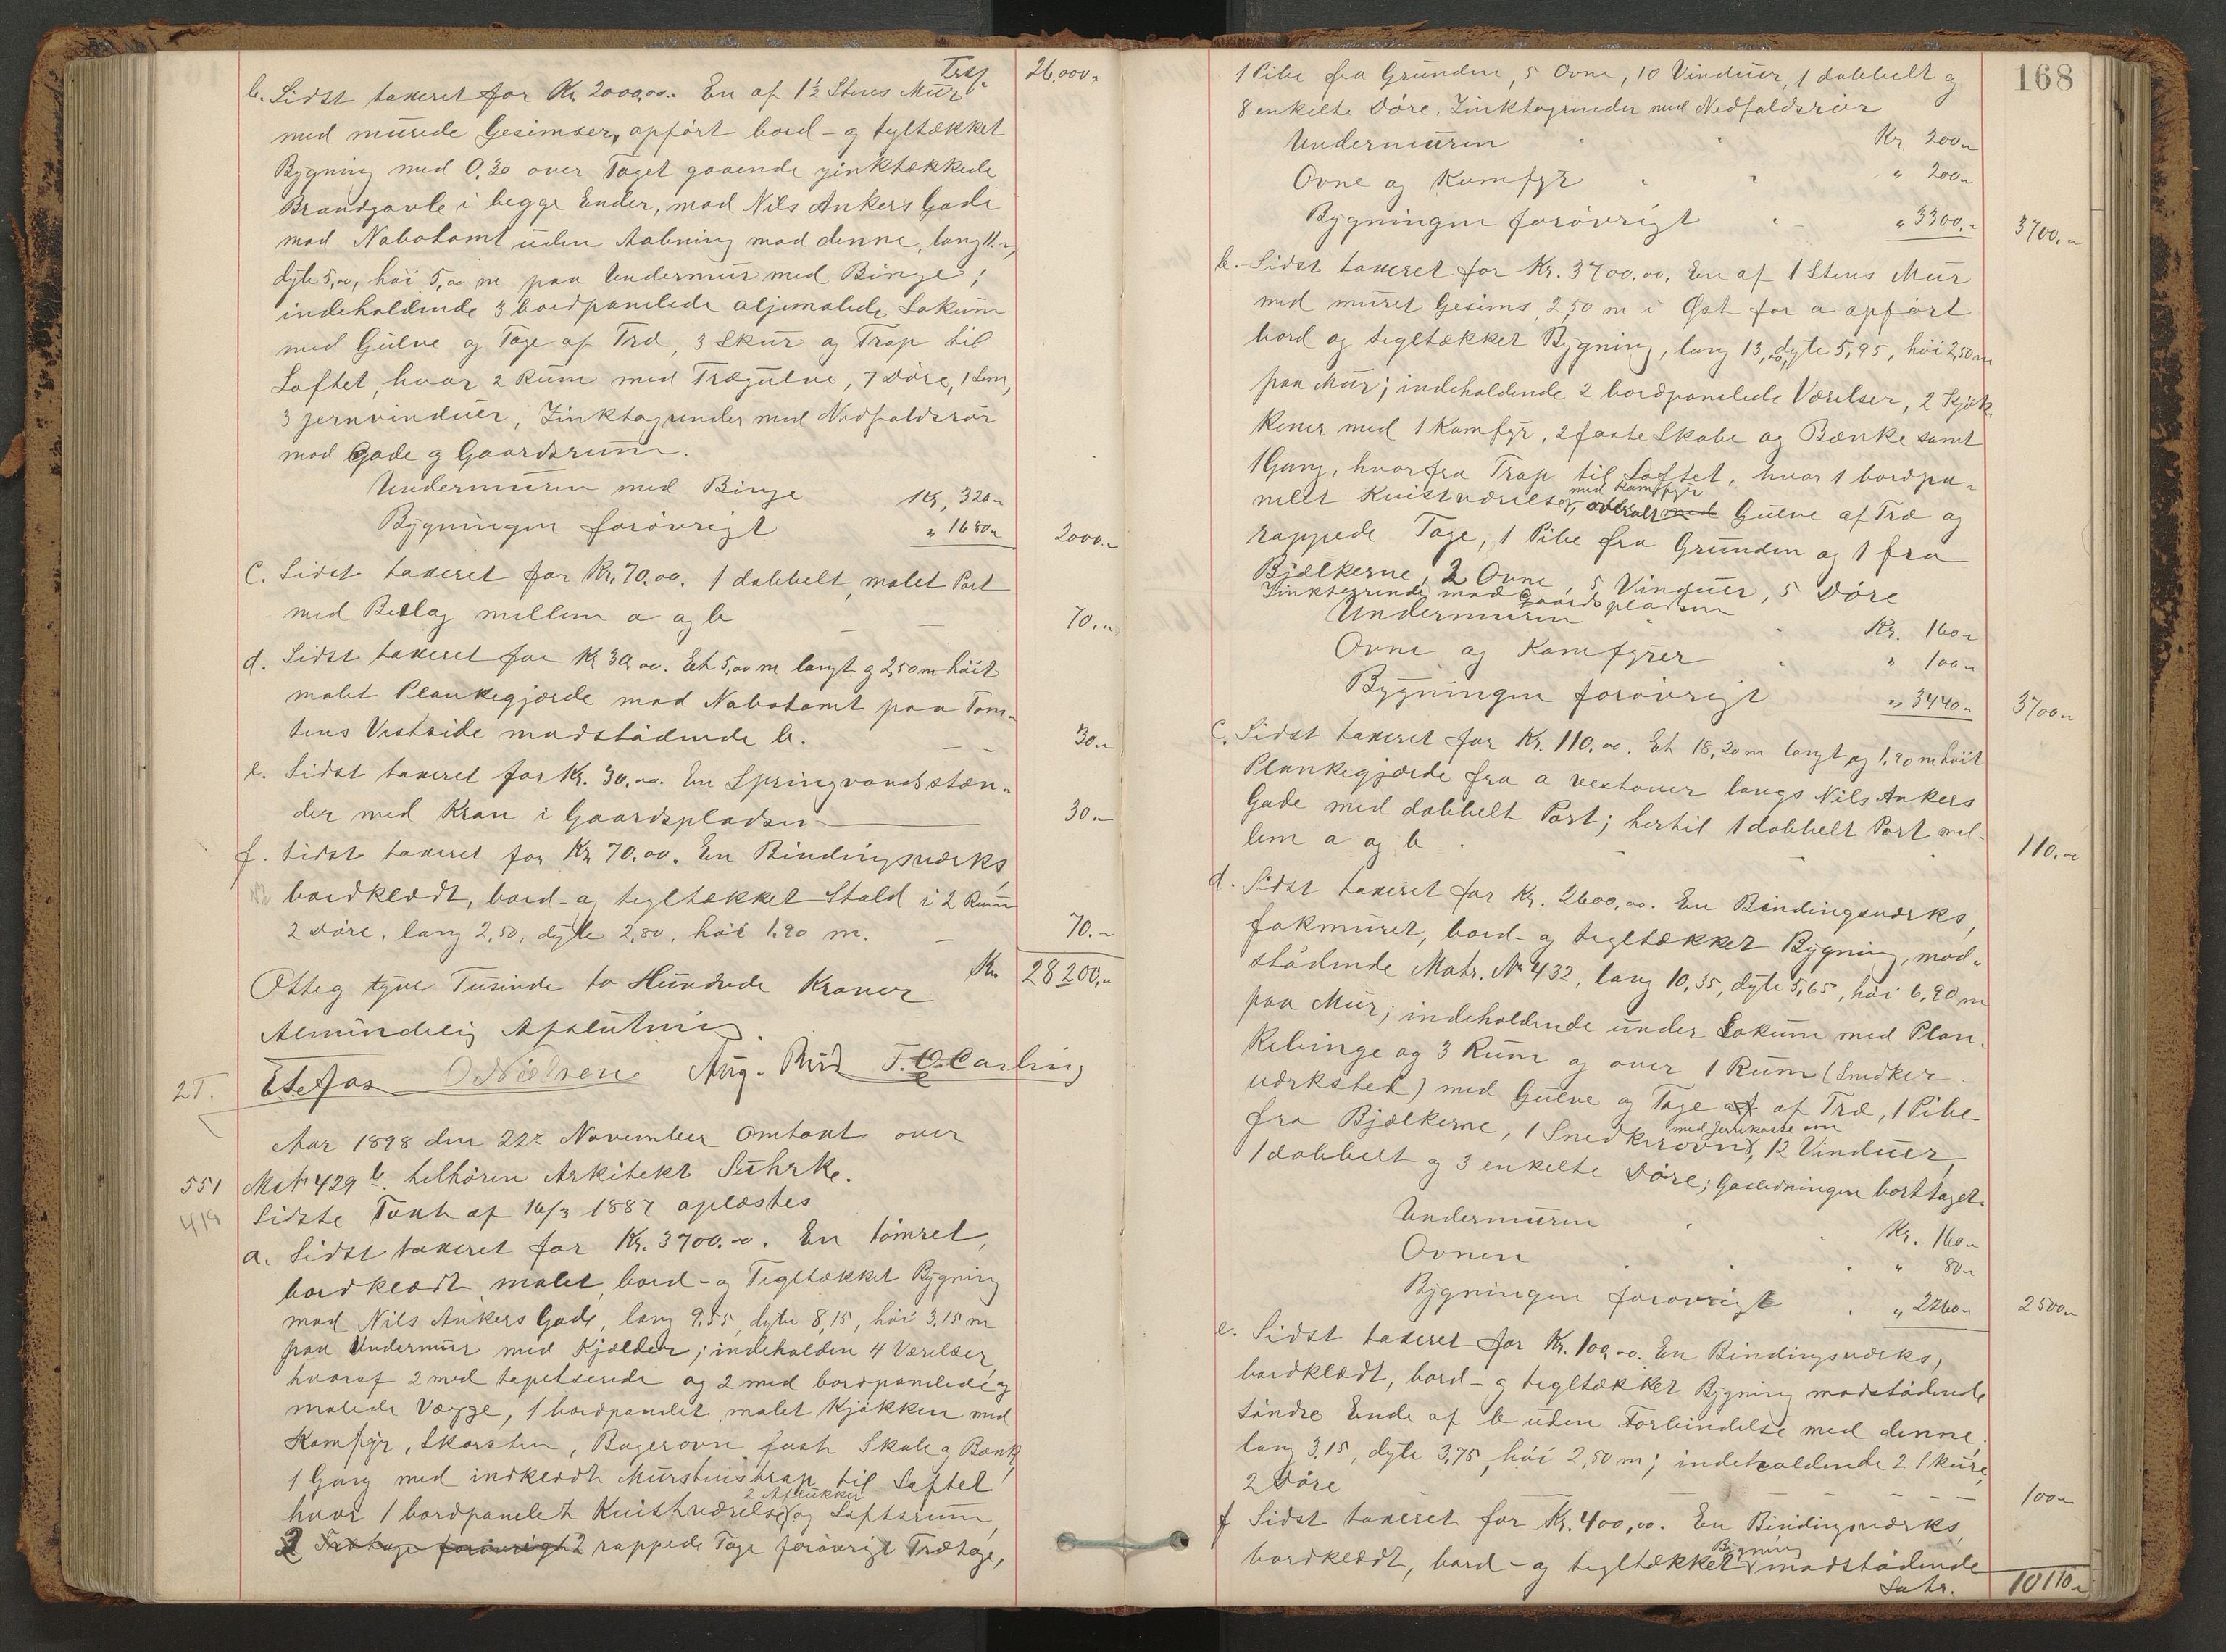 Trsp. 26,000,-
b. Sidst taxeret for Kr. 2000,00. En af 1½ Stens Mur
med murede Gesimser, opført bord- og tegltækket
Bygning med 0.30 over Taget gaaende zinktækkede
Brandgavle i begge Ender, mod Nils Ankers Gade
mod Nabotomt uden Aabning mod denne, lang
dybe 5,00, høi 5,00 m paa Undermur med Binge;
indeholdende 3 bordpanelede oljemalede Lokum
med Gulve og Tage af Træ, 3 Skur og Trap til
Loftet, hvor 2 Rum med Trægulve, 7 Døre, 1 Lem,
3 Jernvinduer, Zinktagrender med Nedfaldsrør
mod Gade og Gaardsrum.
Undermuren med Binge Kr. 320,-
Bygningen forøvrigt " 1680,- 2000,-
c. Sidst taxeret for Kr. 70,00. 1 dobbelt, malet Port
med Beslag mellem a og b 70,-
d. Sidst taxeret for Kr 30,00. Et 5,00 m langt og 2,50 m høit
malet Plankegjærde mod Nabotomt paa Tom-
tens Vestside modstødende b. 30,-
e. Sidst taxeret for Kr. 30,00. En Springvandsstæn-
der med Kran i Gaardspladsen 30,-
f. Sidst taxeret for Kr 70,00. En Bindingsværks,
bordklædt, bord- og tegltækket Stald i 2 Rum
2 Døre, lang 2,50, dybe 2,80, høi 1,90 m. 70,-
Kr. 28200,-
Otte og tyve Tusinde to Hundrede Kroner
Almindelig Afslutning.
O Nielsen Aug.
2T.
Aar 1898 den 22de November Omtaxt over
551 Mat 429 b. tilhøren Arkitekt Sührke.
414 Sidste Taxt af 16/3 1887 oplæstes
a. Sidst taxeret for Kr. 3700,00. En tømret,
bordklædt, malet, bord- og Tegltækket Bygning
mod Nils Ankers Gade, lang 9,55, dybe 8,15, høi 3,15 m
paa Undermur med Kjælder; indeholden 4 Værelser,
hvoraf 2 med tapetserede og 2 med bordpanelede og
malede Vægge, 1 bordpanelet malet Kjøkken med
Komfyr, Skorsten, Bagerovn, faste Skabe og Bænk,
1 Gang med indklædt Murstenstrap til Loftet
hvor 1 bordpanelet Kvistværelse, 2 Aflukker og Loftsrum,
2 Trætage forøvrigt 2 rappede Tage forøvrigt Trætage,
168
1 Pibe fra Grunden, 5 Ovne, 10 Vinduer, 1 dobbelt og
8 enkelte Døre, Zinktagrender med Nedfaldsrør
Undermuren Kr. 200,-
Ovne og Komfyr " 200,-
Bygningen forøvrigt " 3300,- 3700,-
b. Sidst taxeret for Kr. 3700,00. En af 1 Stens Mur
med muret Gesims, 2,50 m i Øst for a opført
bord og tegltækket Bygning, lang 13,00, dybe 5,95, høi 2,50 m
paa Mur; indeholdende 2 bordpanelede Værelser, 2 Kjøk-
kener med 1 Komfyr, 2 faste Skabe og Bænke samt
1 Gang, hvorfra Trap til Loftet, hvor 1 bordpa-
nelet Kvistværelse med Komfyr, overalt med Gulve af Træ og
rappede Tage, 1 Pibe fra Grunden og 1 fra
Bjælkerne, 2 Ovne, 5 Vinduer, 5 Døre
Zinktagrende mod Gaardspladsen
Undermuren Kr. 160,-
Ovne og Komfyrer " 100,-
Bygningen forøvrigt " 3440,- 3700,-
c. Sidst taxeret for Kr. 110,00. Et 18,20 m langt og 1,90 m høit
Plankegjærde fra a vestover langs Nils Ankers
Gade med dobbelt Port; hertil 1 dobbelt Port mel-
lem a og b. 110,00
d. Sidst taxeret for Kr. 2600,00. En Bindingsværks,
fakmuret, bord- og tegltækket Bygning, mod-
stødende Matr. No 432, lang 10,35, dybe 5,65, høi 6,90 m
paa Mur; indeholdende under Lokum med Plan-
kebinge og 3 Rum og over 1 Rum (Snedker-
værksted) med Gulve og Tage af af Træ, 1 Pibe
fra Bjælkerne, 1 Snedkerovn med Jernkasse om, 12 Vinduer,
1 dobbelt og 3 enkelte Døre; Gasledningen borttaget.
Undermuren Kr. 160,-
Ovnen " 80,-
Bygningen forøvrigt " 2260,- 2500,-
e. Sidst taxeret for Kr. 100,00. En Bindingsværks,
bordklædt, bord- og tegltækket Bygning modstødende
søndre Ende af b uden Forbindelse med denne,
lang 3,15, dybe 3,75, høi 2,50 m; indeholdende 2 Skure,
2 Døre 100,-
f Sidst taxeret for Kr. 400,00. En Bindingsværks,
bordklædt, bord- og tegltækket Bygning modstødende
Latr. 10110,-